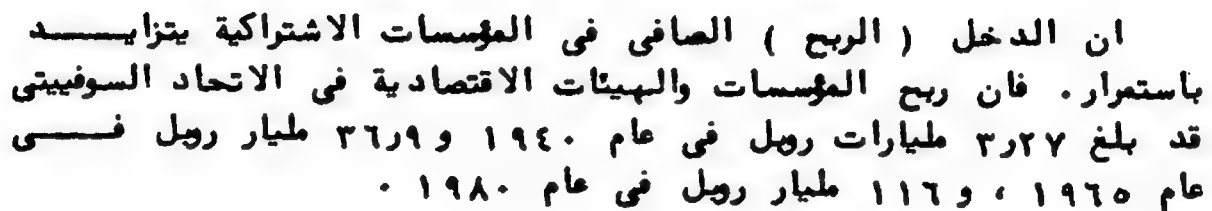 ان الدخل ( الربح ) الصافى فى المؤسسات الاشتراكية يتزايــــد
باستمرار. فان ربح المؤسسات والهيئات الاقتصادية فى الاتحاد السوفييتى
قد بلغ ٢٧ر٣ مليارات روبل فى عام ١٩٤٠ و ٩ر٣٦ مليار روبل فــــى
عام ١٩٦٥ ، و ١١٦ مليار روبل فى عام ١٩٨٠ .